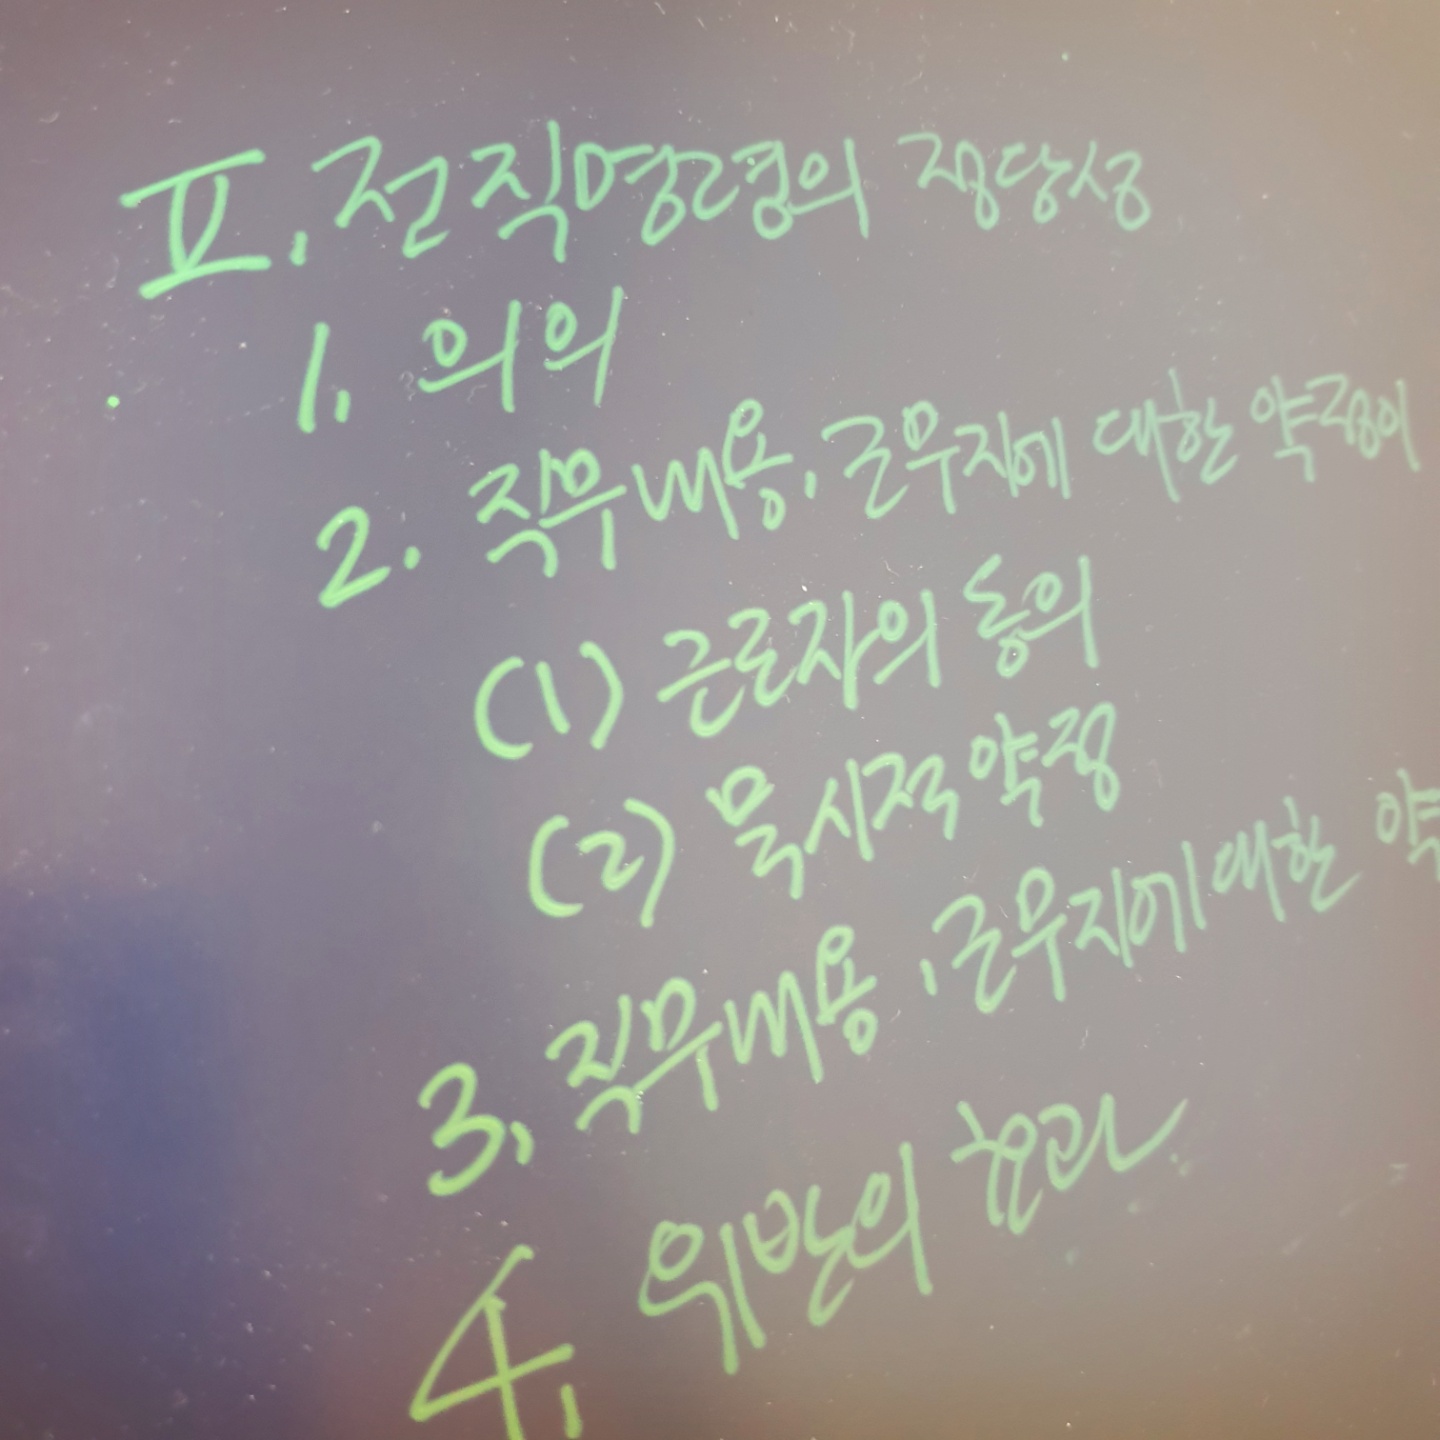 Ⅱ. 전직명령의 정당성
1. 의의
2. 직무내용, 근무지에 대한 약정이
(1) 근로자의 동의
(2) 묵시적 약정
3. 직무내용, 근무지에 대한 약
4. 위반의 효과